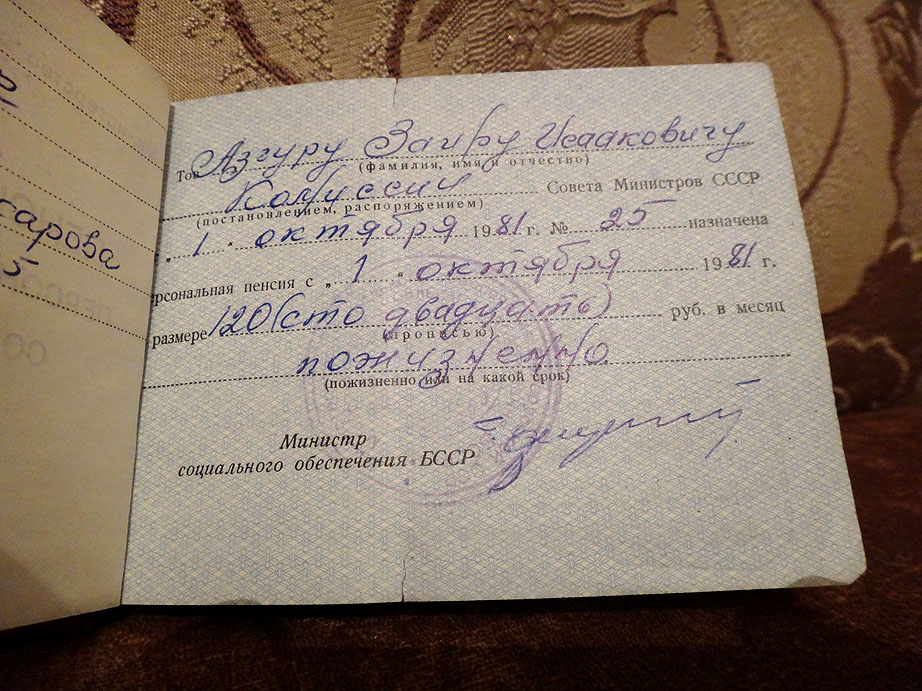 сарова
5
Тов Азгуру Заиру Исааковичу
(фамилия, имя и отчество)
Комиссии Совета Министров СССР
(постановлением, распоряжением)
„ 1 “ октября 1981 г. № 25 назначена
рсональная пенсия с „ 1 “ октября 1981 г.
размере 120 (сто двадцать) руб. в месяц
(прописью)
пожизненно
(пожизненно или на какой срок)
Министр
социального обеспечения БССР